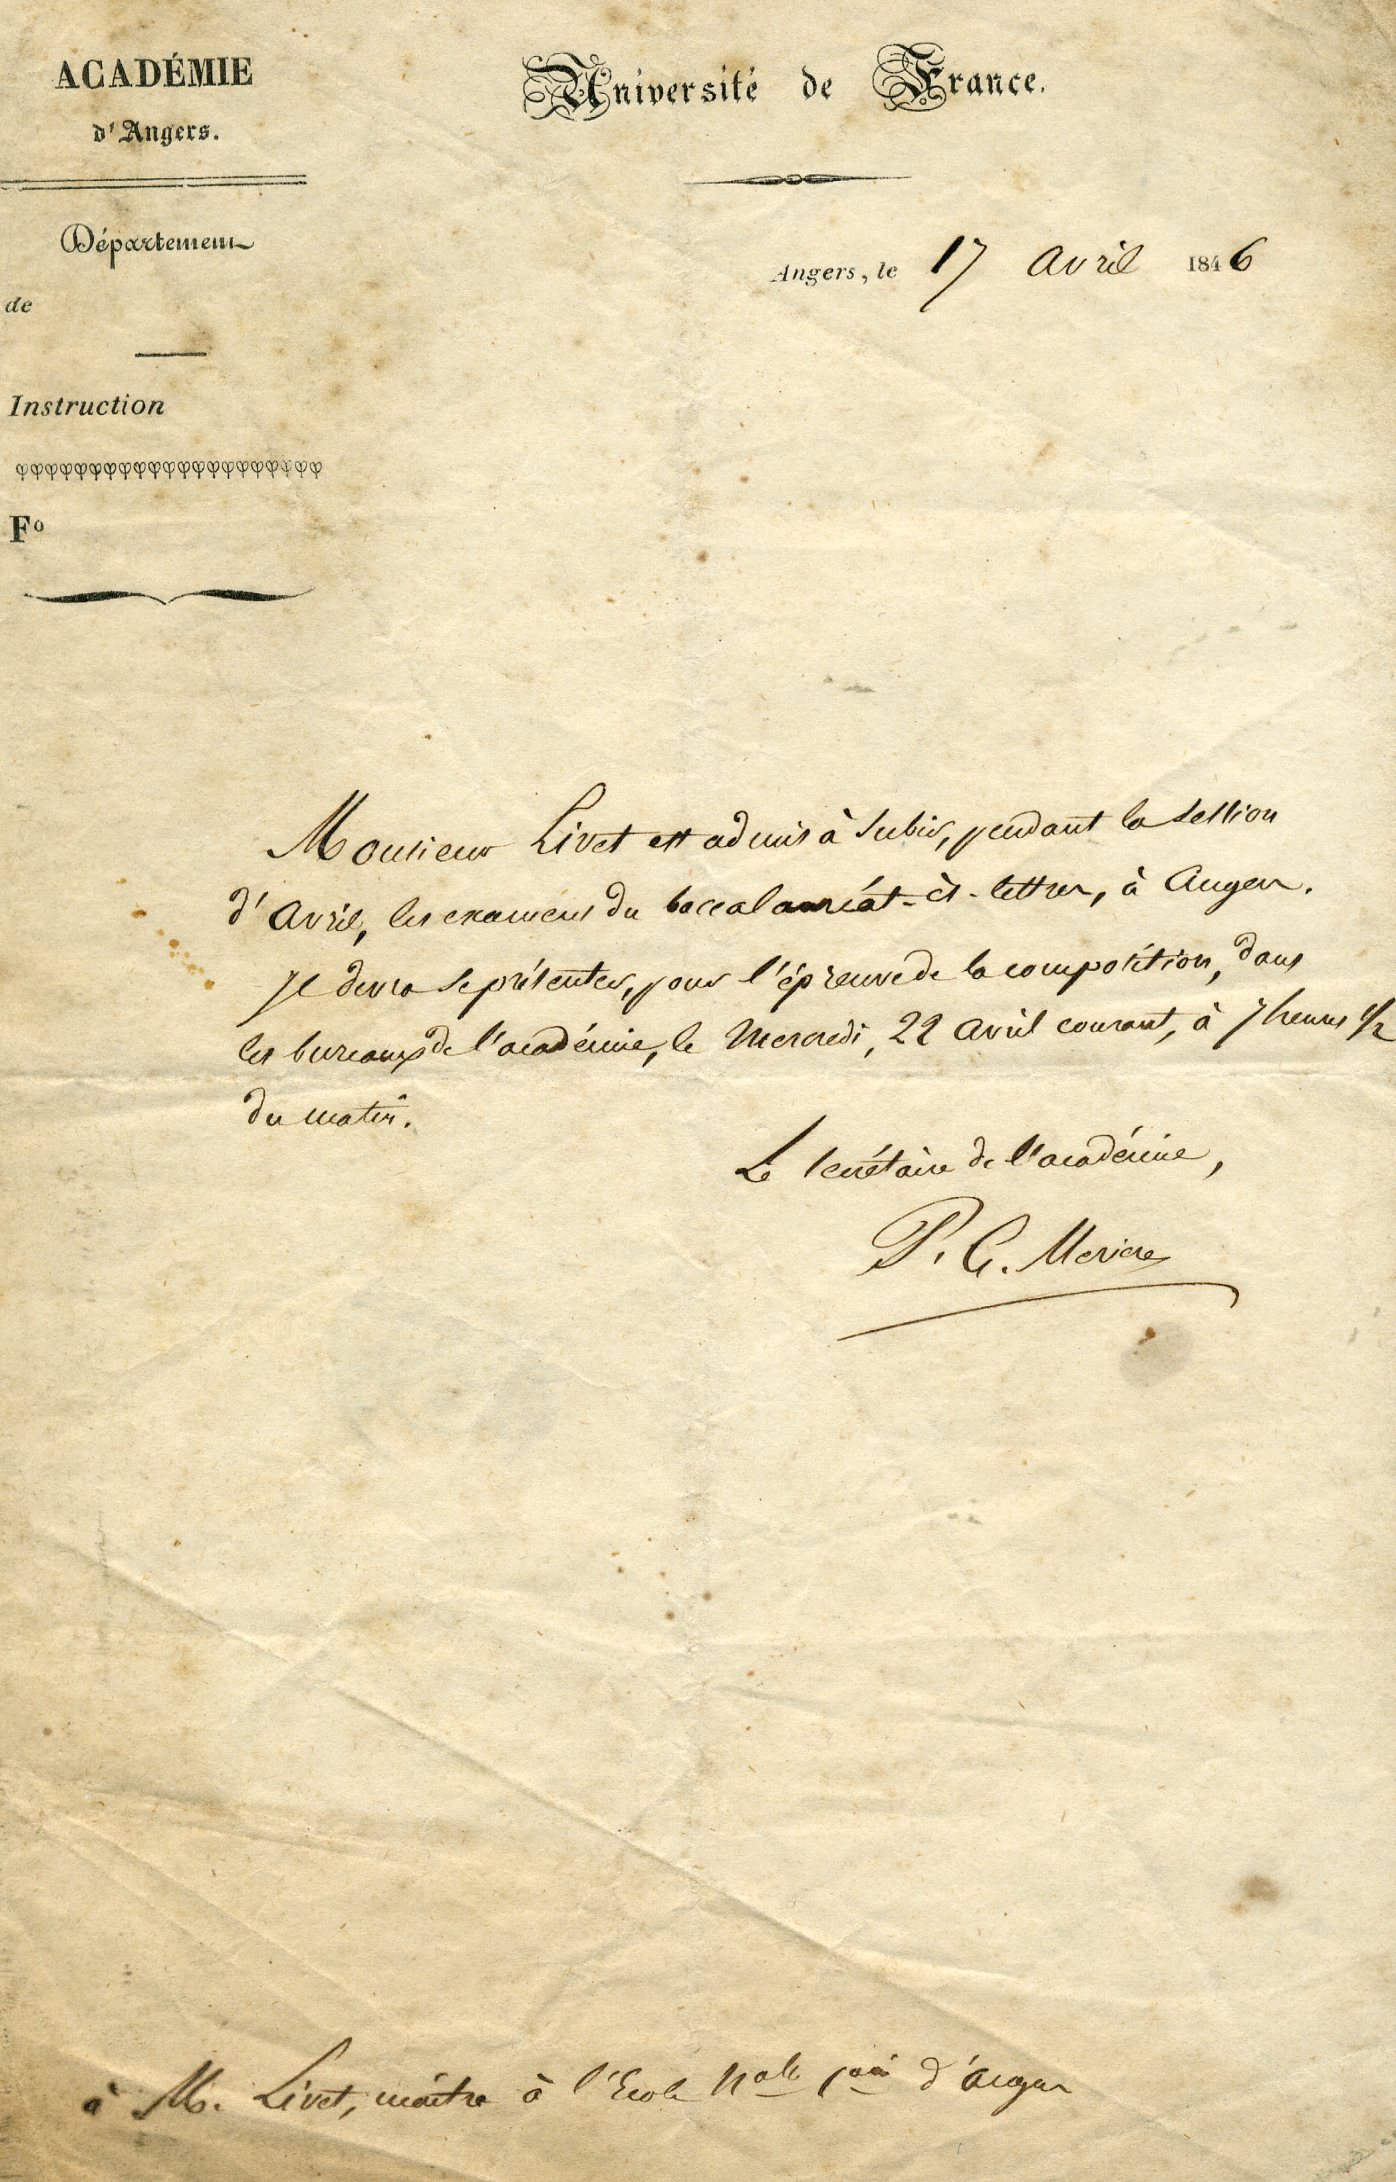 ACADÉMIE
d'Angers.
Université de France.
Département
de
Instruction
Fº
Angers, le 17 avril 1846
Monsieur Livet est admis à subir, pendant la session
d'avril, les examens du baccalauréat-ès-lettres, à Angers.
Il devra se présenter, pour l'épreuve de la composition, dans
les bureaux de l'académie, le Mercredi, 22 avril courant, à 7 heures 1/2
du matin.
Le secrétaire de l'académie,
P. G.
à M. Livet, maître à l'Ecole nale d'Angers